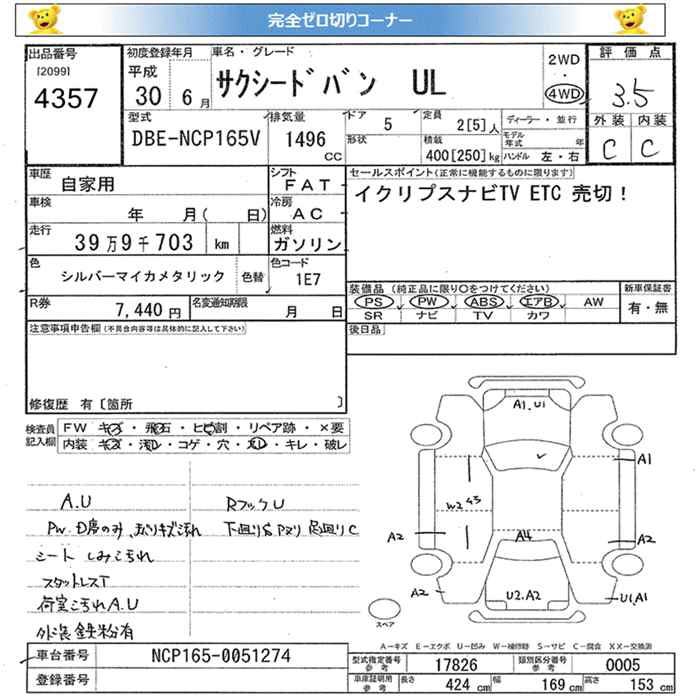 完全ゼロ切りコーナー
出品番号 初度登録年月 車名・グレード 評価点
[2099] 平成 サクシードバン UL 2WD
・
4357 30 6月 4WD 3.5
型式 排気量 ドア 5 定員 2[5]人 ディーラー・並行 外装 内装
DBE-NCP165V 1496 cc 形状 積載 400[250]kg モデル年式 年 ハンドル 左・右 C C
車歴 自家用 シフト FAT セールスポイント(正常に機能するものに限ります)
車検 年 月( 日) 冷房 AC イクリプスナビTV ETC 売切!
走行 39万9千703 km 燃料 ガソリン
色 シルバーマイカメタリック 色替 色コード 1E7
装備品(純正品に限り○をつけてください) 新車保証書
R券 7,440円 名変通知期限 月 日 PS PW ABS エアB AW 有・無
SR ナビ TV カワ
注意事項申告欄(不具合内容等は具体的に記入して下さい) 後日品
修復歴 有〔箇所 〕
検査員記入欄 FW キズ・飛石・ヒビ割・リペア跡・×要
内装 キズ・汚レ・コゲ・穴・スレ・キレ・破レ
A1.U1
A1
W2 43
A.U RフックU
PW D席のみ、 キズ汚れ 下廻りS Pヌリ 足廻りC
A2 A4 A2
シート しみ汚れ
スタットレスT
A2 U2.A2 U1.A1
荷室汚れA.U
スペア
外装鉄粉有
A-キズ E-エクボ U-凹み W-補修跡 S-サビ C-腐食 XX-交換済
車台番号 NCP165-0051274 型式指定番号参考 17826 類別区分番号参考 0005
登録番号 車庫証明用参考 長さ 424cm 幅 169cm 高さ 153cm